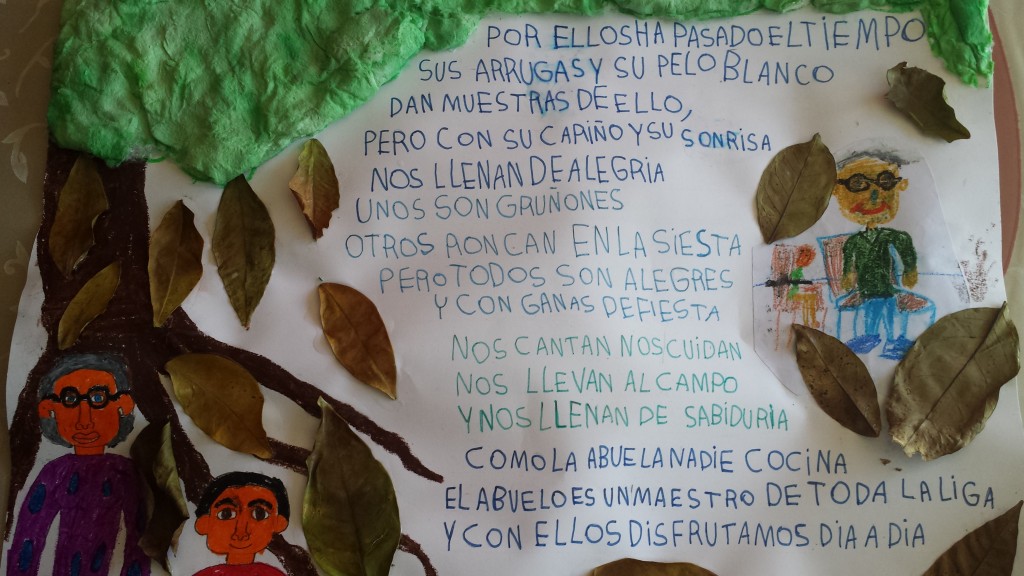 POR ELLOS HA PASADO EL TIEMPO
SUS ARRUGAS Y SU PELO BLANCO
DAN MUESTRAS DE ELLO,
PERO CON SU CARIÑO Y SU SONRISA
NOS LLENAN DE ALEGRIA
UNOS SON GRUÑONES
OTROS RONCAN EN LA SIESTA
PERO TODOS SON ALEGRES
Y CON GANAS DE FIESTA
NOS CANTAN NOS CUIDAN
NOS LLEVAN AL CAMPO
Y NOS LLENAN DE SABIDURIA
COMO LA ABUELA NADIE COCINA
EL ABUELO ES UN MAESTRO DE TODA LA LIGA
Y CON ELLOS DISFRUTAMOS DIA A DIA